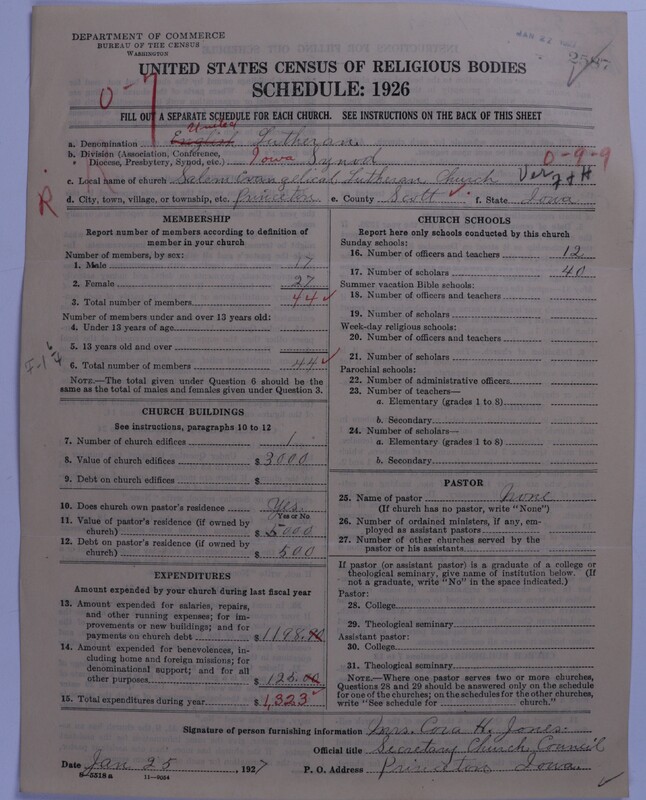 DEPARTMENT OF COMMERCE
BUREAU OF THE CENSUS
WASHINGTON
2587
UNITED STATES CENSUS OF RELIGIOUS BODIES
SCHEDULE: 1926
0-7
FILL OUT A SEPARATE SCHEDULE FOR EACH CHURCH. SEE INSTRUCTIONS ON THE BACK OF THIS SHEET
United
a. Denomination English Lutheran
b. Division (Association, Conference, Diocese, Presbytery, Synod, etc.) Iowa Synod
0-9-9
c. Local name of church Salem Evangelical Lutheran Church
Ver F+H
R
d. City, town, village, or township, etc. Princeton e. County Scott f. State Iowa
MEMBERSHIP
Report number of members according to definition of member in your church
Number of members, by sex:
1. Male 17
2. Female 27
3. Total number of members 44
Number of members under and over 13 years old:
4. Under 13 years of age
5. 13 years old and over
6. Total number of members 44
NOTE.—The total given under Question 6 should be the same as the total of males and females given under Question 3.
CHURCH BUILDINGS
See instructions, paragraphs 10 to 12
7. Number of church edifices 1
8. Value of church edifices $ 3000
9. Debt on church edifices $
10. Does church own pastor's residence Yes
Yes or No
11. Value of pastor's residence (if owned by church) $ 5000
12. Debt on pastor's residence (if owned by church) $ 500
EXPENDITURES
Amount expended by your church during last fiscal year
13. Amount expended for salaries, repairs, and other running expenses; for improvements or new buildings; and for payments on church debt $ 1198.
14. Amount expended for benevolences, including home and foreign missions; for denominational support; and for all other purposes $ 125.00
15. Total expenditures during year $ 1,323
CHURCH SCHOOLS
Report here only schools conducted by this church
Sunday schools:
16. Number of officers and teachers 12
17. Number of scholars 40
Summer vacation Bible schools:
18. Number of officers and teachers
19. Number of scholars
Week-day religious schools:
20. Number of officers and teachers
21. Number of scholars
Parochial schools:
22. Number of administrative officers
23. Number of teachers—
a. Elementary (grades 1 to 8)
b. Secondary
24. Number of scholars—
a. Elementary (grades 1 to 8)
b. Secondary
PASTOR
25. Name of pastor None
(If church has no pastor, write "None")
26. Number of ordained ministers, if any, employed as assistant pastors
27. Number of other churches served by the pastor or his assistants
If pastor (or assistant pastor) is a graduate of a college or theological seminary, give name of institution below. (If not a graduate, write "No" in the space indicated.)
Pastor:
28. College
29. Theological seminary
Assistant pastor:
30. College
31. Theological seminary
NOTE.—Where one pastor serves two or more churches, Questions 28 and 29 should be answered only on the schedule for one of the churches; on the schedules for the other churches write "See schedule for church."
Signature of person furnishing information Mrs. Cora H. Jones.
Official title Secretary Church Council
Date Jan 25, 1927 P. O. Address Princeton Iowa.
8-5518a 11-9054